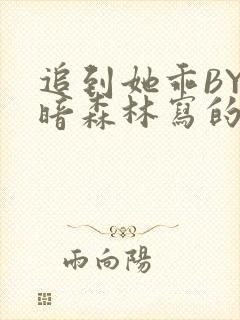 追到她乖BY
暗森林寫的
雨向陽